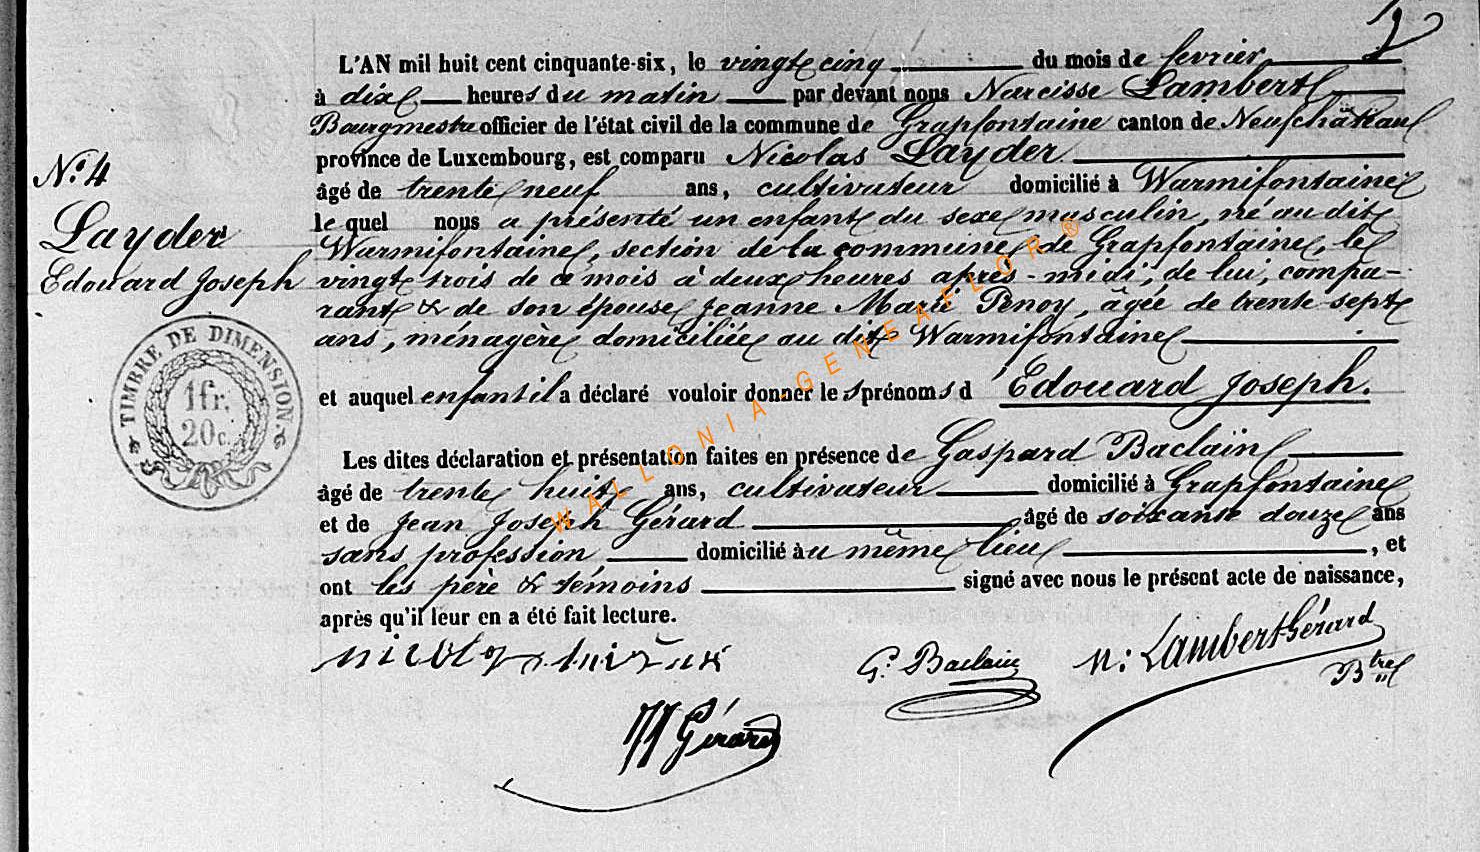 2
L'AN mil huit cent cinquante-six, le vingt cinq du mois de fevrier
à dix heures du matin par devant nous Narcisse Lambert
Bourgmestre officier de l'état civil de la commune de Grapfontaine canton de Neufchâteau
province de Luxembourg, est comparu Nicolas Layder
âgé de trente neuf ans, cultivateur domicilié à Warmifontaine
le quel nous a présenté un enfant du sexe masculin, né au dit
Warmifontaine, section de la commune de Grapfontaine, le
vingt trois de ce mois à deux heures après-midi, de lui, compa-
rant & de son épouse Jeanne Marie Penoy, âgée de trente sept
ans, ménagère domiciliée au dit Warmifontaine
et auquel enfant il a déclaré vouloir donner les prénoms d'Edouard Joseph.
Les dites déclaration et présentation faites en présence de Gaspard Baclain
âgé de trente huit ans, cultivateur domicilié à Grapfontaine
et de Jean Joseph Gérard âgé de soixante douze ans
sans profession domicilié au même lieu, et
ont les père & témoins signé avec nous le présent acte de naissance,
après qu'il leur en a été fait lecture.
G. Baclain
N: Lambert-Gérard
Btre
JJ Gérard
N° 4
Layder
Edouard Joseph
TIMBRE DE DIMENSION.
1fr.
20c.
WALLONIA-GENEAFLOR ®